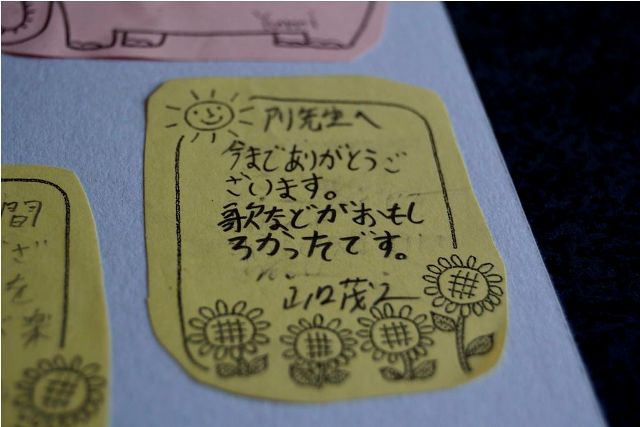 先生へ
今までありがとうご
ざいます。
歌などがおもし
ろかったです。
山口茂
間
ざ
を
楽